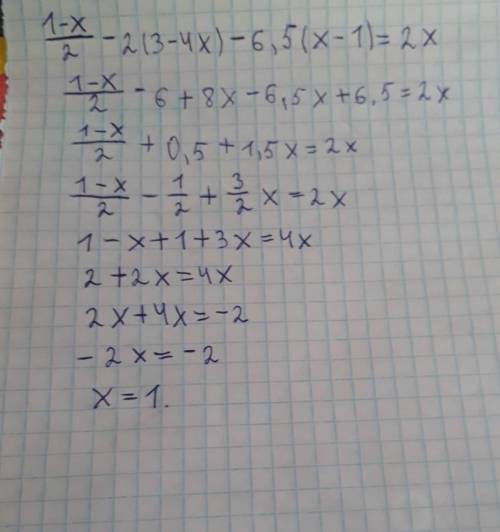 (1-x)/2 - 2(3-4x) - 6,5(x-1) = 2x
(1-x)/2 - 6 + 8x - 6,5x + 6,5 = 2x
(1-x)/2 + 0,5 + 1,5x = 2x
(1-x)/2 - 1/2 + 3/2 x = 2x
1 - x + 1 + 3x = 4x
2 + 2x = 4x
2x + 4x = -2
- 2x = -2
x = 1.